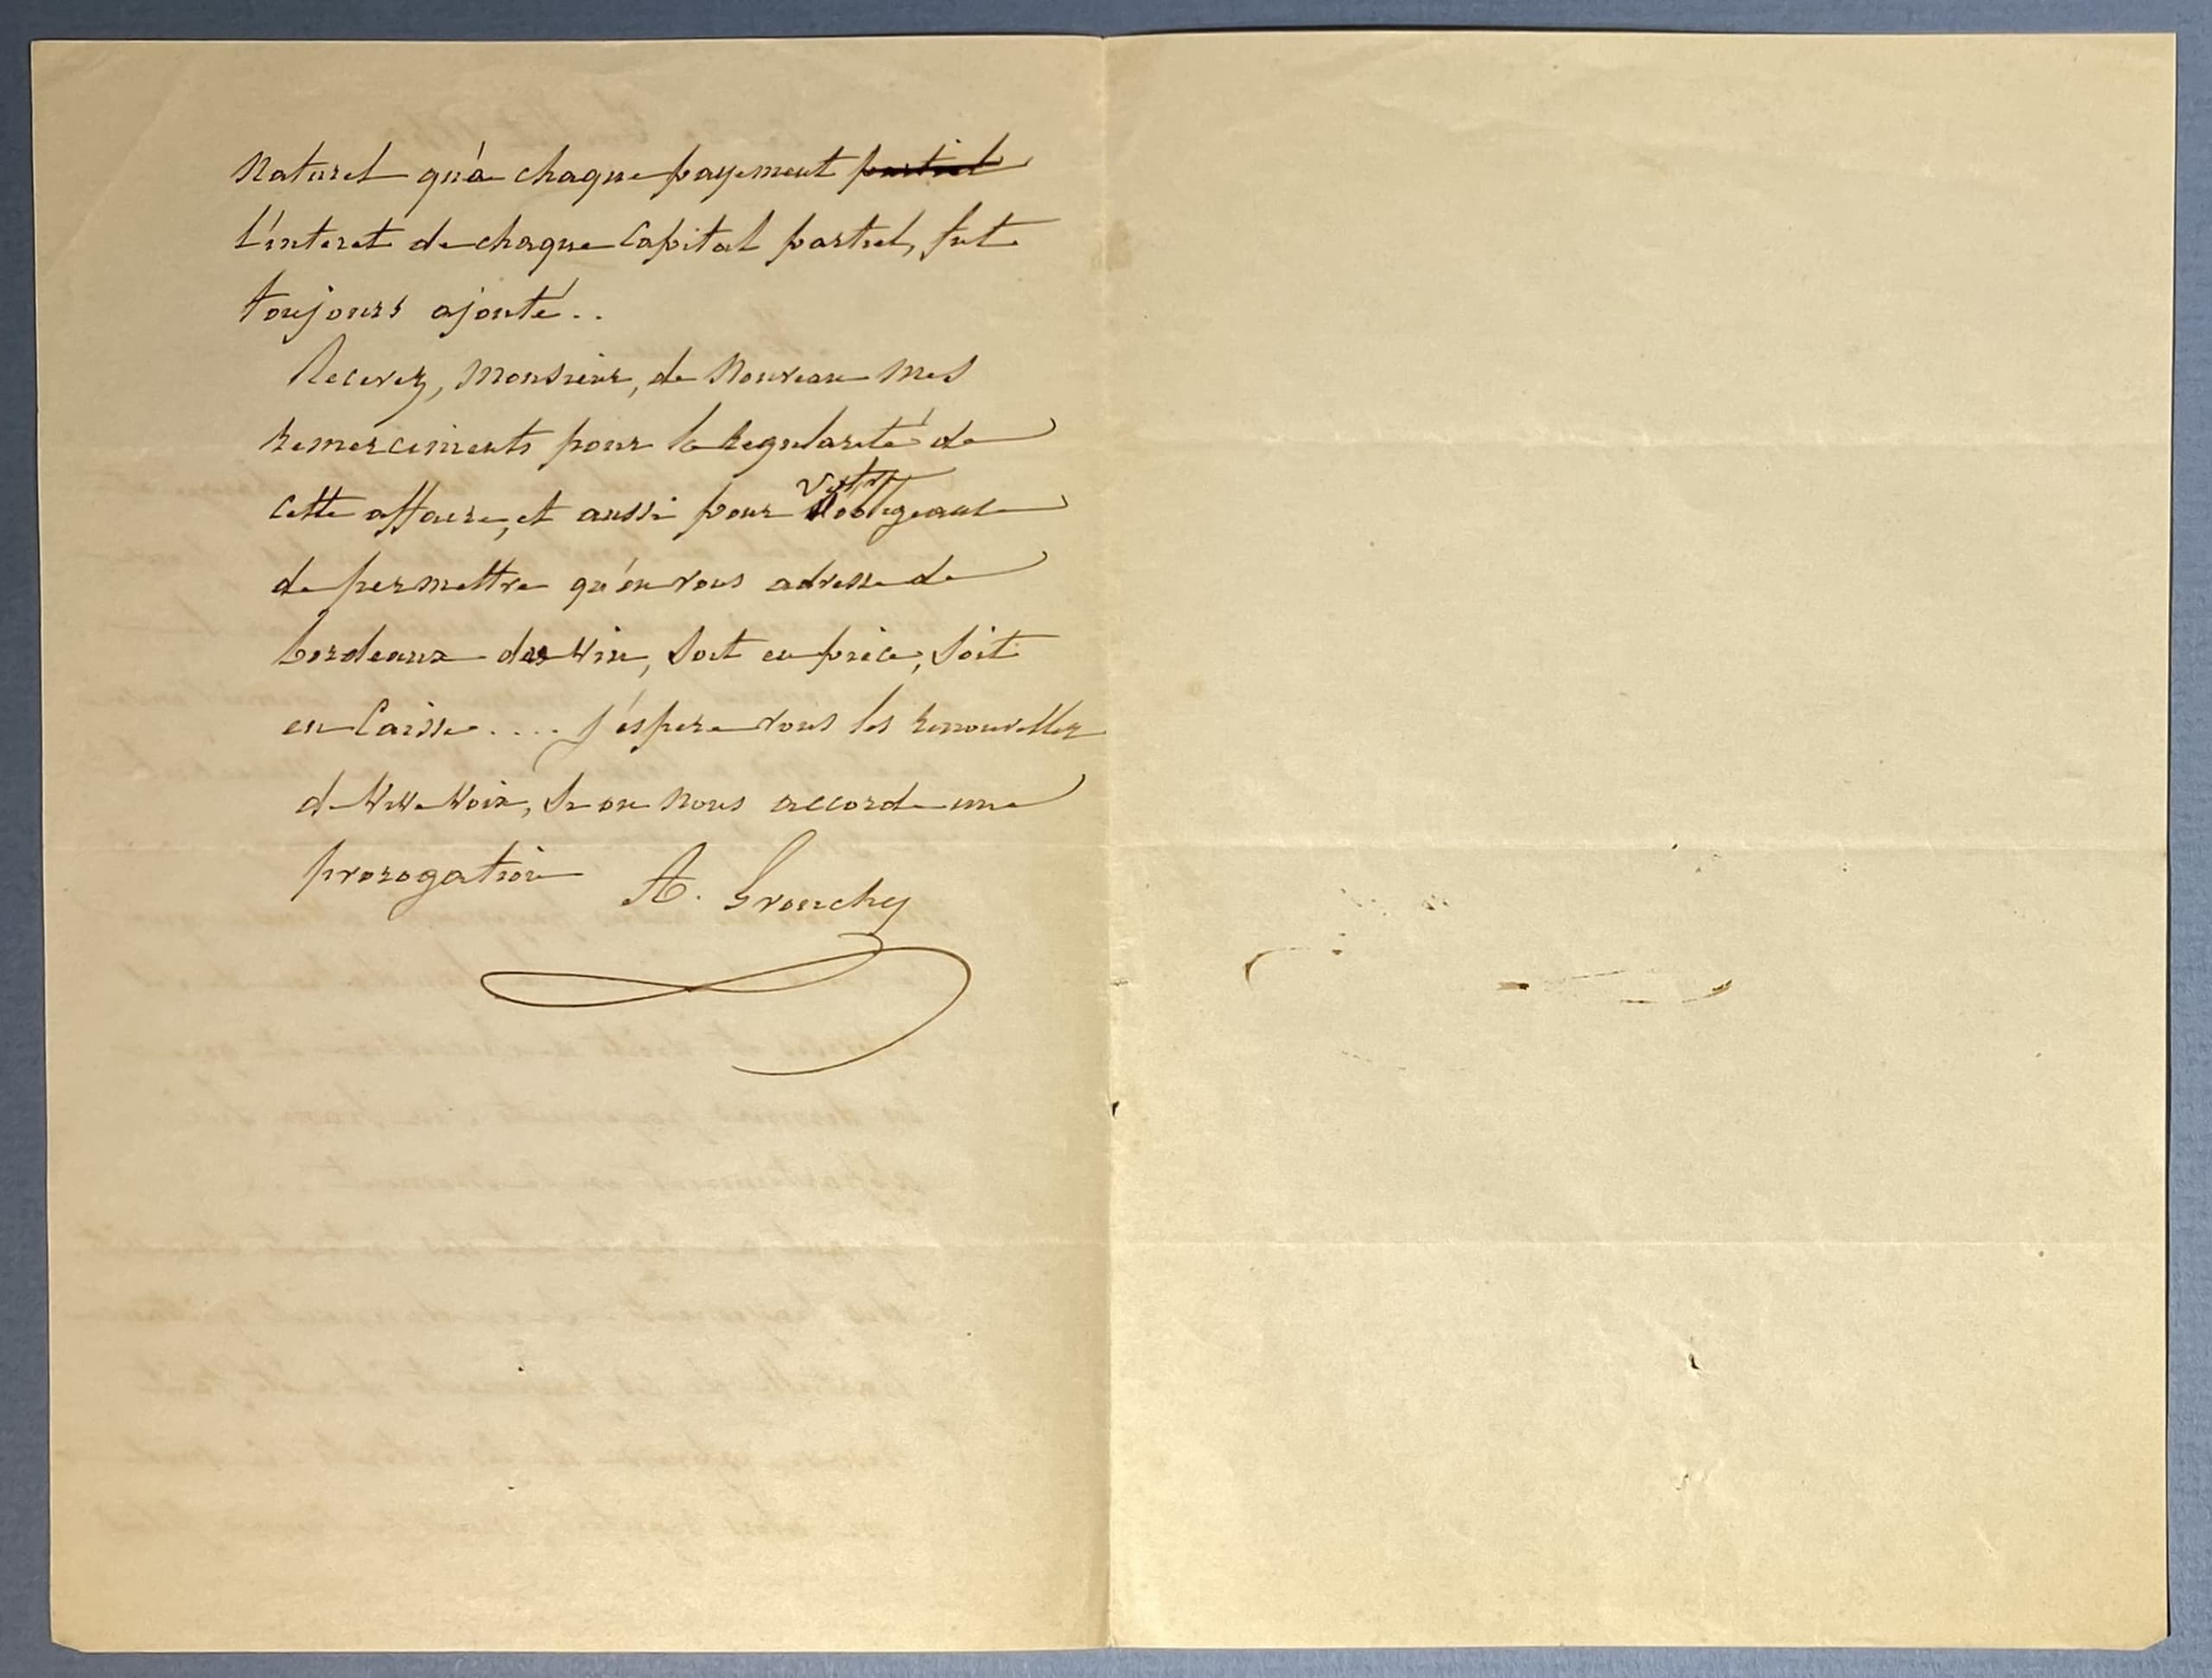 Naturel qu'à chaque payement partiel
l'interet de chaque Capital partiel, fut
toujours ajouté..
Recevez, Monsieur, de Nouveau mes
remerciments pour la regularité de
cette affaire, et aussi pour votre obligeance
de permettre qu'on vous adresse de
bordeaux du vin, soit en pièce, soit
en Caisse.... j'éspere vous les renouveller
de vive voix, si on nous accorde une
prorogation A. Grouchy